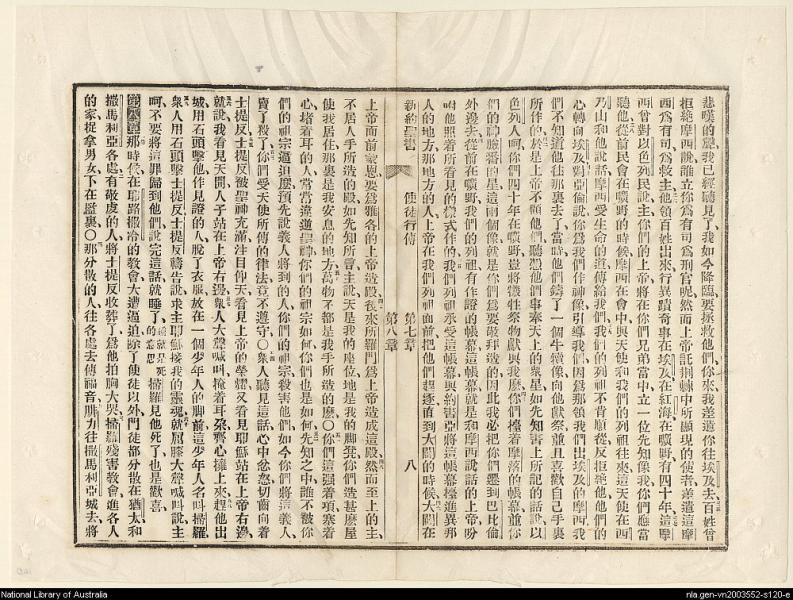 悲嘆的聲我已經聽見了我如今降臨要拯救他們你來我差遣你往埃及去百姓曾
拒絕摩西說誰立你為有司為刑官呢然而上帝託荊棘中所顯現的使者差遣這摩
西為有司為救主他領百姓出來行異蹟奇事在埃及在紅海在曠野有四十年這摩
西曾對以色列民說主你們的上帝將在你們兄弟當中立一位先知像我你們應當
聽他從前民會在曠野的時候摩西在會中與天使和我們的列祖往來這天使在西
乃山和他說話摩西受生命的道傳給我們我們的列祖不肯順從反拒絕他他們的
心轉向埃及對亞倫說你為我們作神像引導我們因為那領我們出埃及的摩西我
們不知道他往那裏去了當時他們鑄了一個牛犢像向他獻祭並且喜歡自己手裏
所作的於是上帝不顧他們聽憑他們事奉天上的衆星如先知書上所記的話說以
色列人呵你們四十年在曠野豈將犧牲祭物獻與我麼你們擡着摩落的帳幕並你
們的神臉番的星這兩個像就是你們為要敬拜造的因此我必把你們遷到巴比倫
外邊去從前在曠野我們的列祖有作證的帳幕這帳幕就是和摩西說話的上帝吩
咐他照着所看見的樣式作的我們列祖承受這帳幕與約書亞將這帳幕擡進異邦
人的地方那地方的人上帝在我們列祖面前把他們趕逐直到大闢的時候大闢在
新約聖書 使徒行傳 第七章 第八章 八
上帝面前蒙恩要為雅各的上帝造殿後來所羅門為上帝造成這殿然而至上的主
不居人手所造的殿如先知所言主說天是我的座位地是我的脚凳你們造甚麼屋
使我居住那裏是我安息的地方萬物不都是我手所造的麼○你們這强着項塞着
心堵着耳的人常常違逆聖神你們的祖宗如何你們也是如何先知之中誰不被你
們的祖宗逼迫麼預先說義人將到的人你們的祖宗殺害他們如今你們將這義人
賣了殺了你們受天使所傳的律法竟不遵守○衆人聽見這話心中忿怒切齒向着
士提反士提反被聖神充滿注目仰天看見上帝的榮耀又看見耶穌站在上帝右邊
就說我看見天開人子站在上帝右邊衆人大聲喊叫掩着耳朶齊心擁上來趕他出
城用石頭擊他作見證的人脫了衣服放在一個少年人的脚前這少年人名叫掃羅
衆人用石頭擊士提反士提反禱告說求主耶穌接我的靈魂就屈膝大聲喊叫說主
呵不要將這罪歸到他們說完這話就睡了睡就是死的意思掃羅見他死了也是歡喜
第八章那時候在耶路撒冷的教會大遭逼迫除了使徒以外門徒都分散在猶太和
撒馬利亞各處有敬虔的人將士提反收葬了為他拍胸大哭掃羅殘害教會進各人
的家捉拿男女下在監裏○那分散的人往各處去傳福音腓力往撒馬利亞城去將
National Library of Australia
nla.gen-vn2003552-s120-e